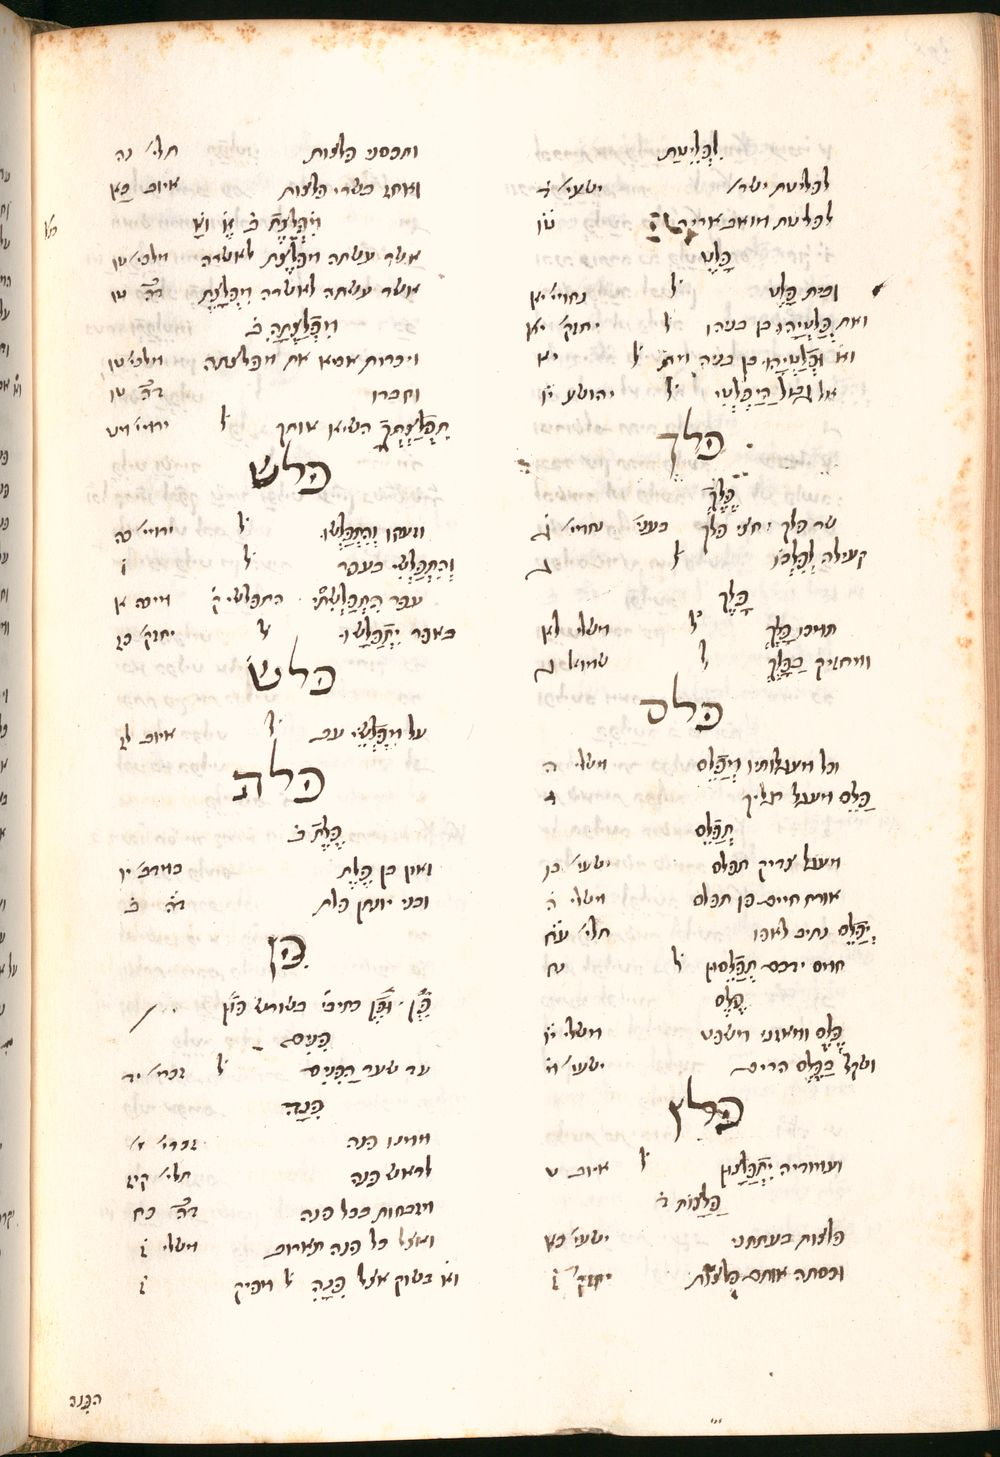 לִפְלֵיטַת
לפליטת ישר׳ ישעי׳ ד
לפליטת מואב אריה טו
פָּלֶט
ובית פָּלֶט ל׳ נחמי׳ יא
ואת פְּלַטְיָהוּ בן בניהו ל׳ יחזק׳ יא
וּפְלַטְיָהוּ בן בניה וית׳ ל׳ יא
הַפַּלְטִי ל׳ יהושע
פלך
פֶּלֶךְ
שר פלך חצי פלך נחמי׳ ג
קעילה לְפִלְכּוֹ ל׳ ג
פָּלֶךְ
תמכו פָלֶךְ ל׳ משלי לא
ומחזיק בַּפֶּלֶךְ ל׳ שמואל ג
פלס
וכל מעגלותיו מְפַלֵּס משלי ה
פַּלֵּס מעגל רגליך ד
תְּפַלֵּס
מעגל צדיק תפלס ישעי׳ כו
אורח חיים פן תפלס משלי ה
יְפַלֵּס נתיב לאפו תלי׳ עח
חמס ידכם תְּפַלֵּסוּן ל׳ נח
פֶּלֶס
פֶּלֶס ומאזני משפט משלי יו
ושקל בַּפֶּלֶס הרים ישעי׳ מ
פלץ
ועמודיה יִתְפַלָּצוּן ל׳ איוב ט
פַּלָּצוּת ד
פלצות בעתתני ישעי׳ כא
וכסתה אותם פַּלָּצוּת יחזק׳ ז
ותכסני פלצות תלי׳ נה
ואחז בשרי פלצות איוב כא
מִפְלֶצֶת ב׳
אשר עשתה מִפְלֶצֶת לאשרה מלכי׳ טו
אשר עשתה לאשרה מִפְלָצֶת דה׳ טו
מִפְלַצְתָּהּ ב
ויכרות אסא את מפלצתה מלכי׳ טו
וחברו דה׳ טו
תִּפְלַצְתְּךָ השיא אותך ל׳ ירמי׳ מט
פלש
וזעקו וְהִתְפַּלְּשׁוּ ל׳ ירמי׳ כה
וְהִתְפַּלְּשִׁי בעפר ל׳ ו
עפר הִתְפַּלָּשְׁתִּי התפלשי ק׳ מיכה א
באפר יִתְפַּלָּשׁוּ ל׳ יחזק׳ כז
פלש
על מִפְלְשֵׂי עב ל׳ איוב לז
פלת
פֶּלֶת ב
ואון בן פֶּלֶת במדב׳ יו
ובני יונתן פלת דה׳ ב
פן
פֶּן וּפֶן כתיבי׳ בשורש
פנים
עד שער הַפִּנִּים ל׳ זכרי׳ יד
פִּנָּה
ממנו פנה זכרי׳ י׳
לראש פנה תלי׳ קיח
מזבחות בכל פנה דה׳ כח
ואצל כל פנה תארוב משלי ז
בשוק אצל פִּנָּהּ ל׳ מפיק ז
הפנה